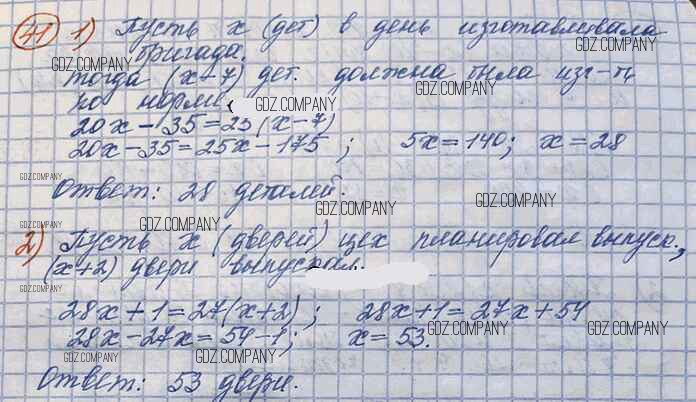 41 1) Пусть x (дет) в день изготавливала
бригада.
GDZ.COMPANY
GDZ.COMPANY
Тогда (x-7) дет. должна была изг-ть
GDZ.COMPANY
по норме.
GDZ.COMPANY
20x-35=25(x-7)
20x-35=25x-175; 5x=140; x=28
GDZ.COMPANY
Ответ: 28 деталей.
GDZ.COMPANY
GDZ.COMPANY
GDZ.COMPANY
2) Пусть x (дверей) цех планировал выпуск.,
GDZ.COMPANY
(x+2) двери выпускал.
GDZ.COMPANY
28x+1=27(x+2); 28x+1=27x+54
GDZ.COMPANY
GDZ.COMPANY
28x-27x=54-1; x=53.
GDZ.COMPANY
GDZ.COMPANY
Ответ: 53 двери.